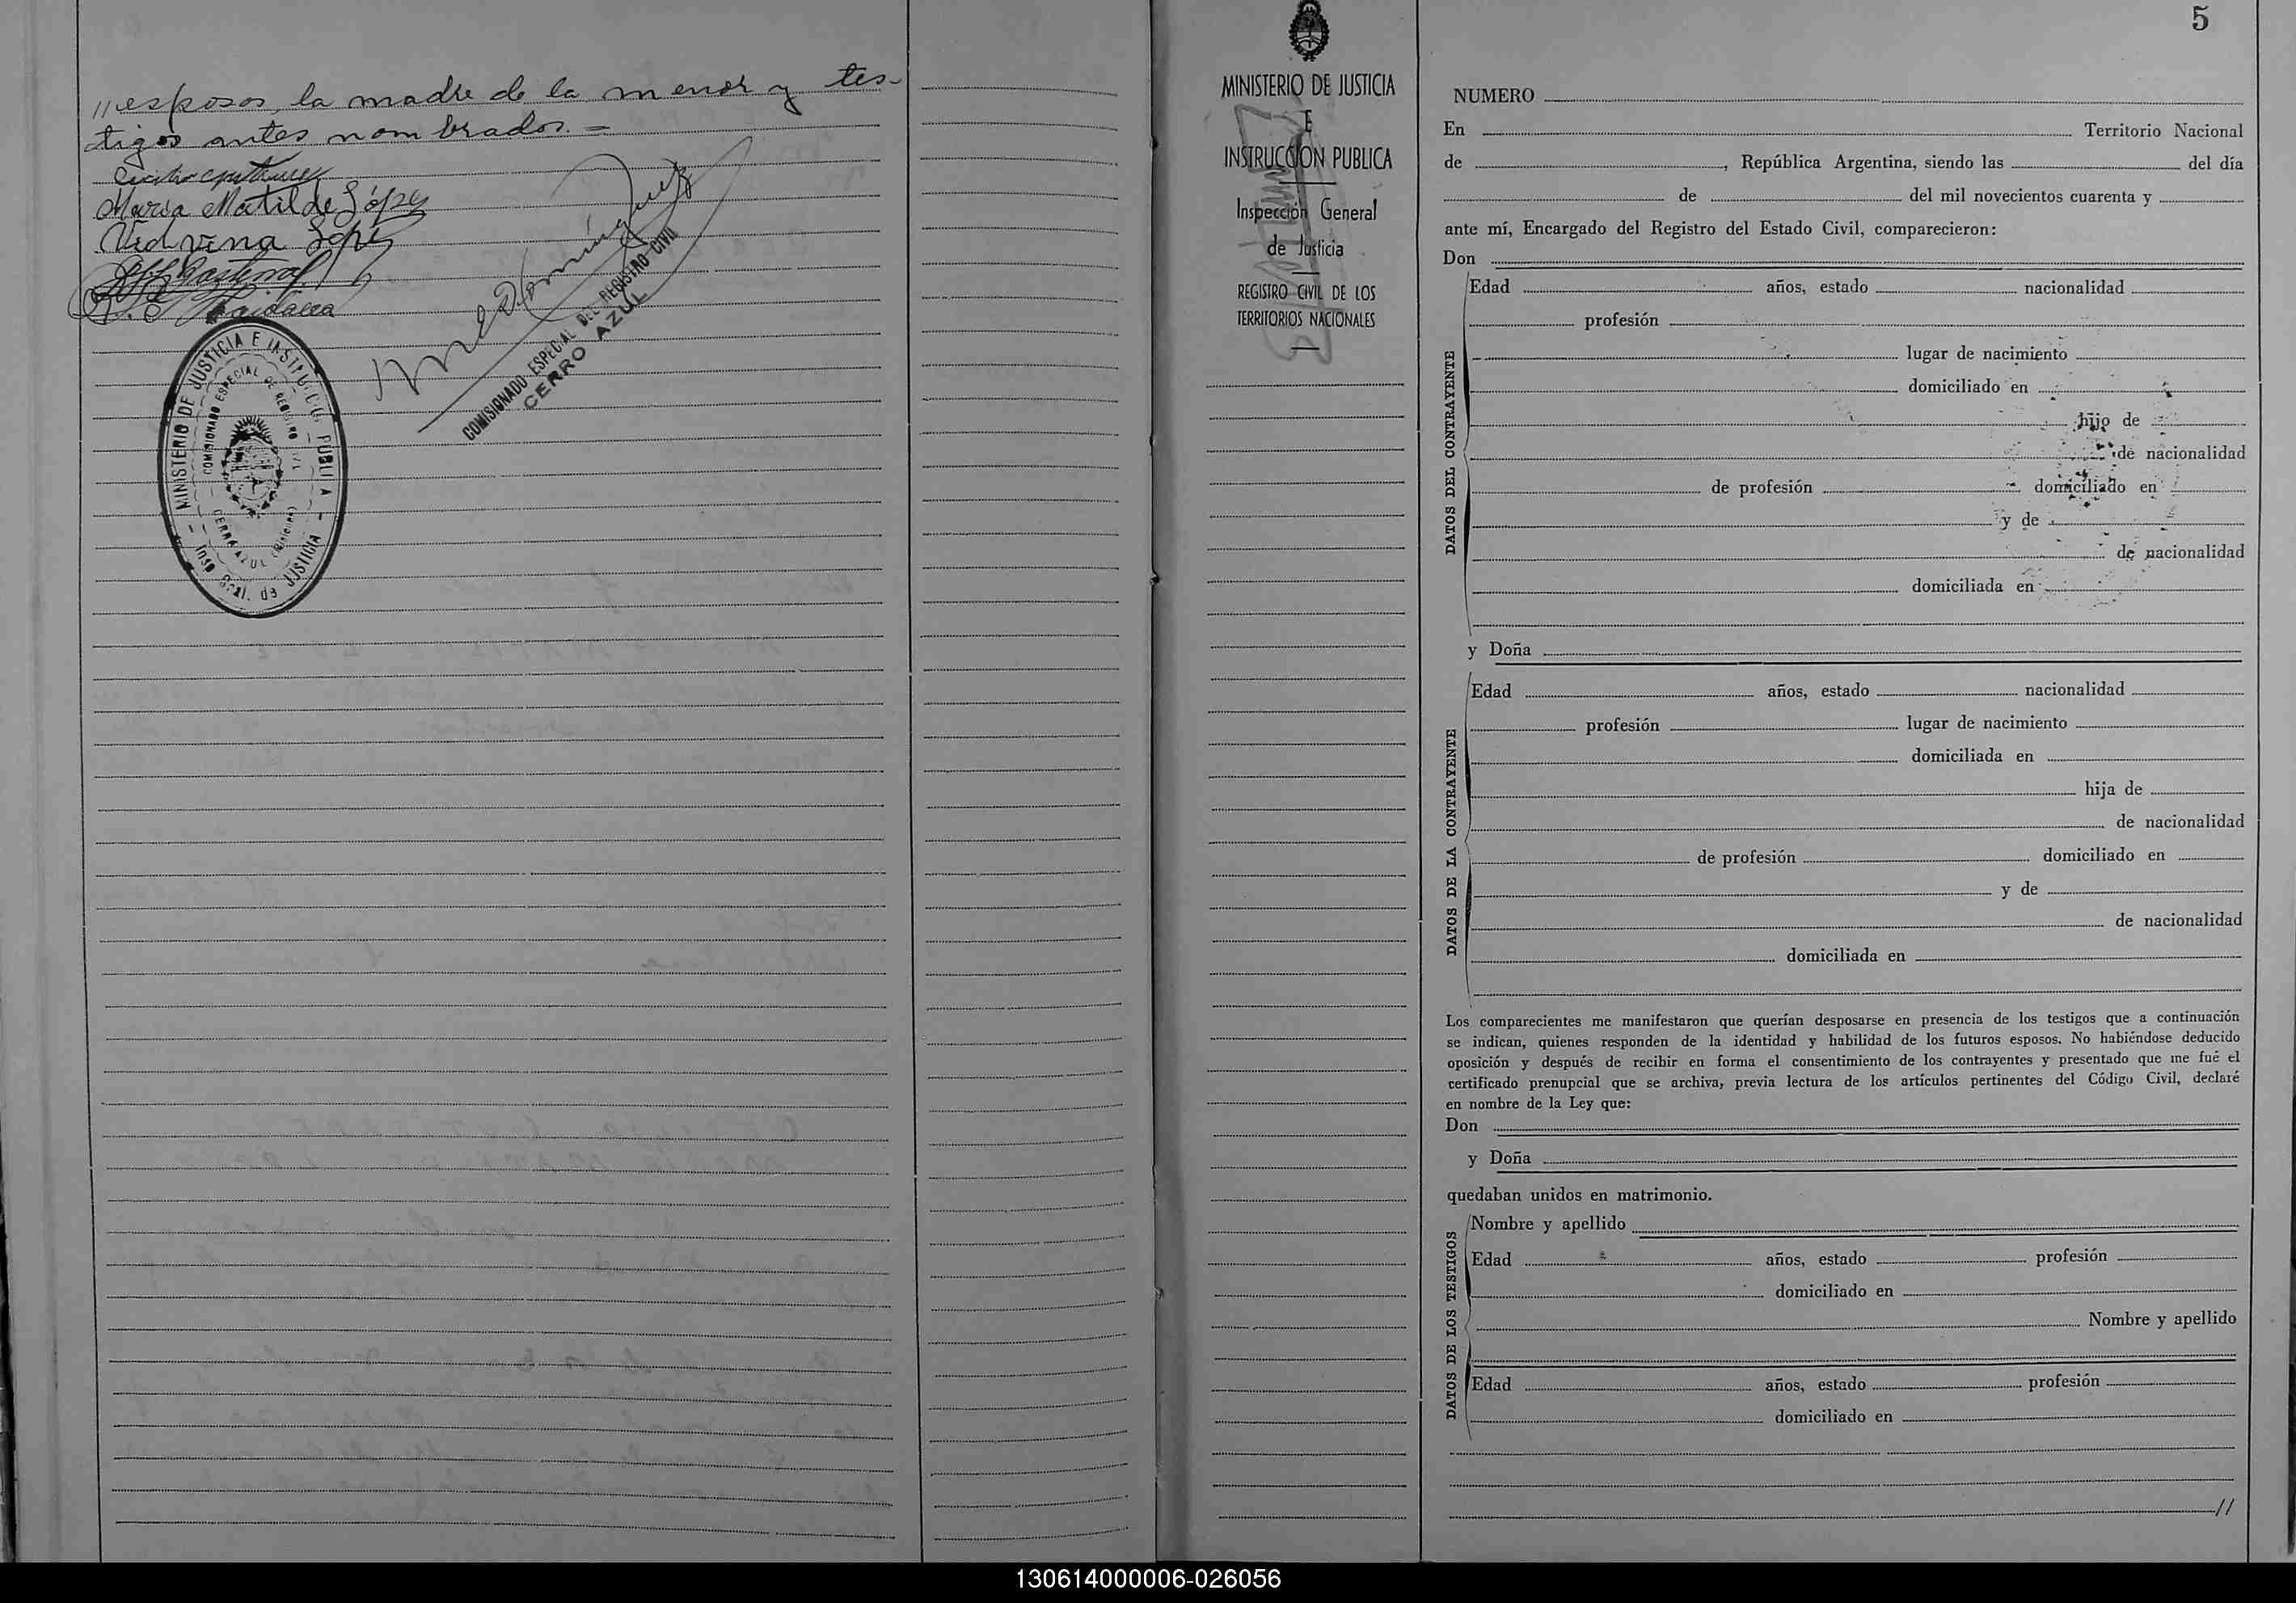 // esposos, la madre de la menor y tes-
tigos antes nombrados. =
Maria Matilde López
Vidvina López
COMISIONADO ESPECIAL DEL REGISTRO CIVIL
CERRO AZUL
MINISTERIO DE JUSTICIA E INSTRUCCION PUBLICA
Insp. Gral. de JUSTICIA
COMISIONADO ESPECIAL DE REGISTRO
MINISTERIO DE JUSTICIA
E
INSTRUCCION PUBLICA
Inspección General
de Justicia
REGISTRO CIVIL DE LOS
TERRITORIOS NACIONALES
5
NUMERO
En Territorio Nacional
de , República Argentina, siendo las del día
de del mil novecientos cuarenta y
ante mí, Encargado del Registro del Estado Civil, comparecieron:
Don
DATOS DEL CONTRAYENTE
Edad años, estado nacionalidad
profesión
lugar de nacimiento
domiciliado en
hijo de
de nacionalidad
de profesión domiciliado en
y de
de nacionalidad
domiciliada en
y Doña
DATOS DE LA CONTRAYENTE
Edad años, estado nacionalidad
profesión lugar de nacimiento
domiciliada en
hija de
de nacionalidad
de profesión domiciliado en
y de
de nacionalidad
domiciliada en
Los comparecientes me manifestaron que querían desposarse en presencia de los testigos que a continuación
se indican, quienes responden de la identidad y habilidad de los futuros esposos. No habiéndose deducido
oposición y después de recibir en forma el consentimiento de los contrayentes y presentado que me fué el
certificado prenupcial que se archiva, previa lectura de los artículos pertinentes del Código Civil, declaré
en nombre de la Ley que:
Don
y Doña
quedaban unidos en matrimonio.
DATOS DE LOS TESTIGOS
Nombre y apellido
Edad años, estado profesión
domiciliado en
Nombre y apellido
Edad años, estado profesión
domiciliado en
//
130614000006-026056